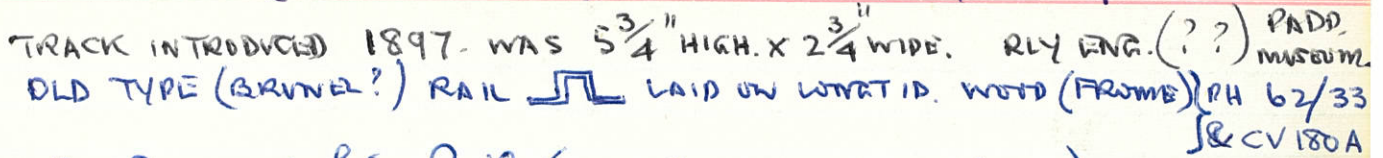 TRACK INTRODUCED 1897. WAS 5 3/4" HIGH. X 2 3/4" WIDE. RLY ENG. (??) PADD. MUSEUM.
OLD TYPE (BRUNEL?) RAIL LAID ON LONGTID. WOOD (FROME) PH 62/33
& CV 180A